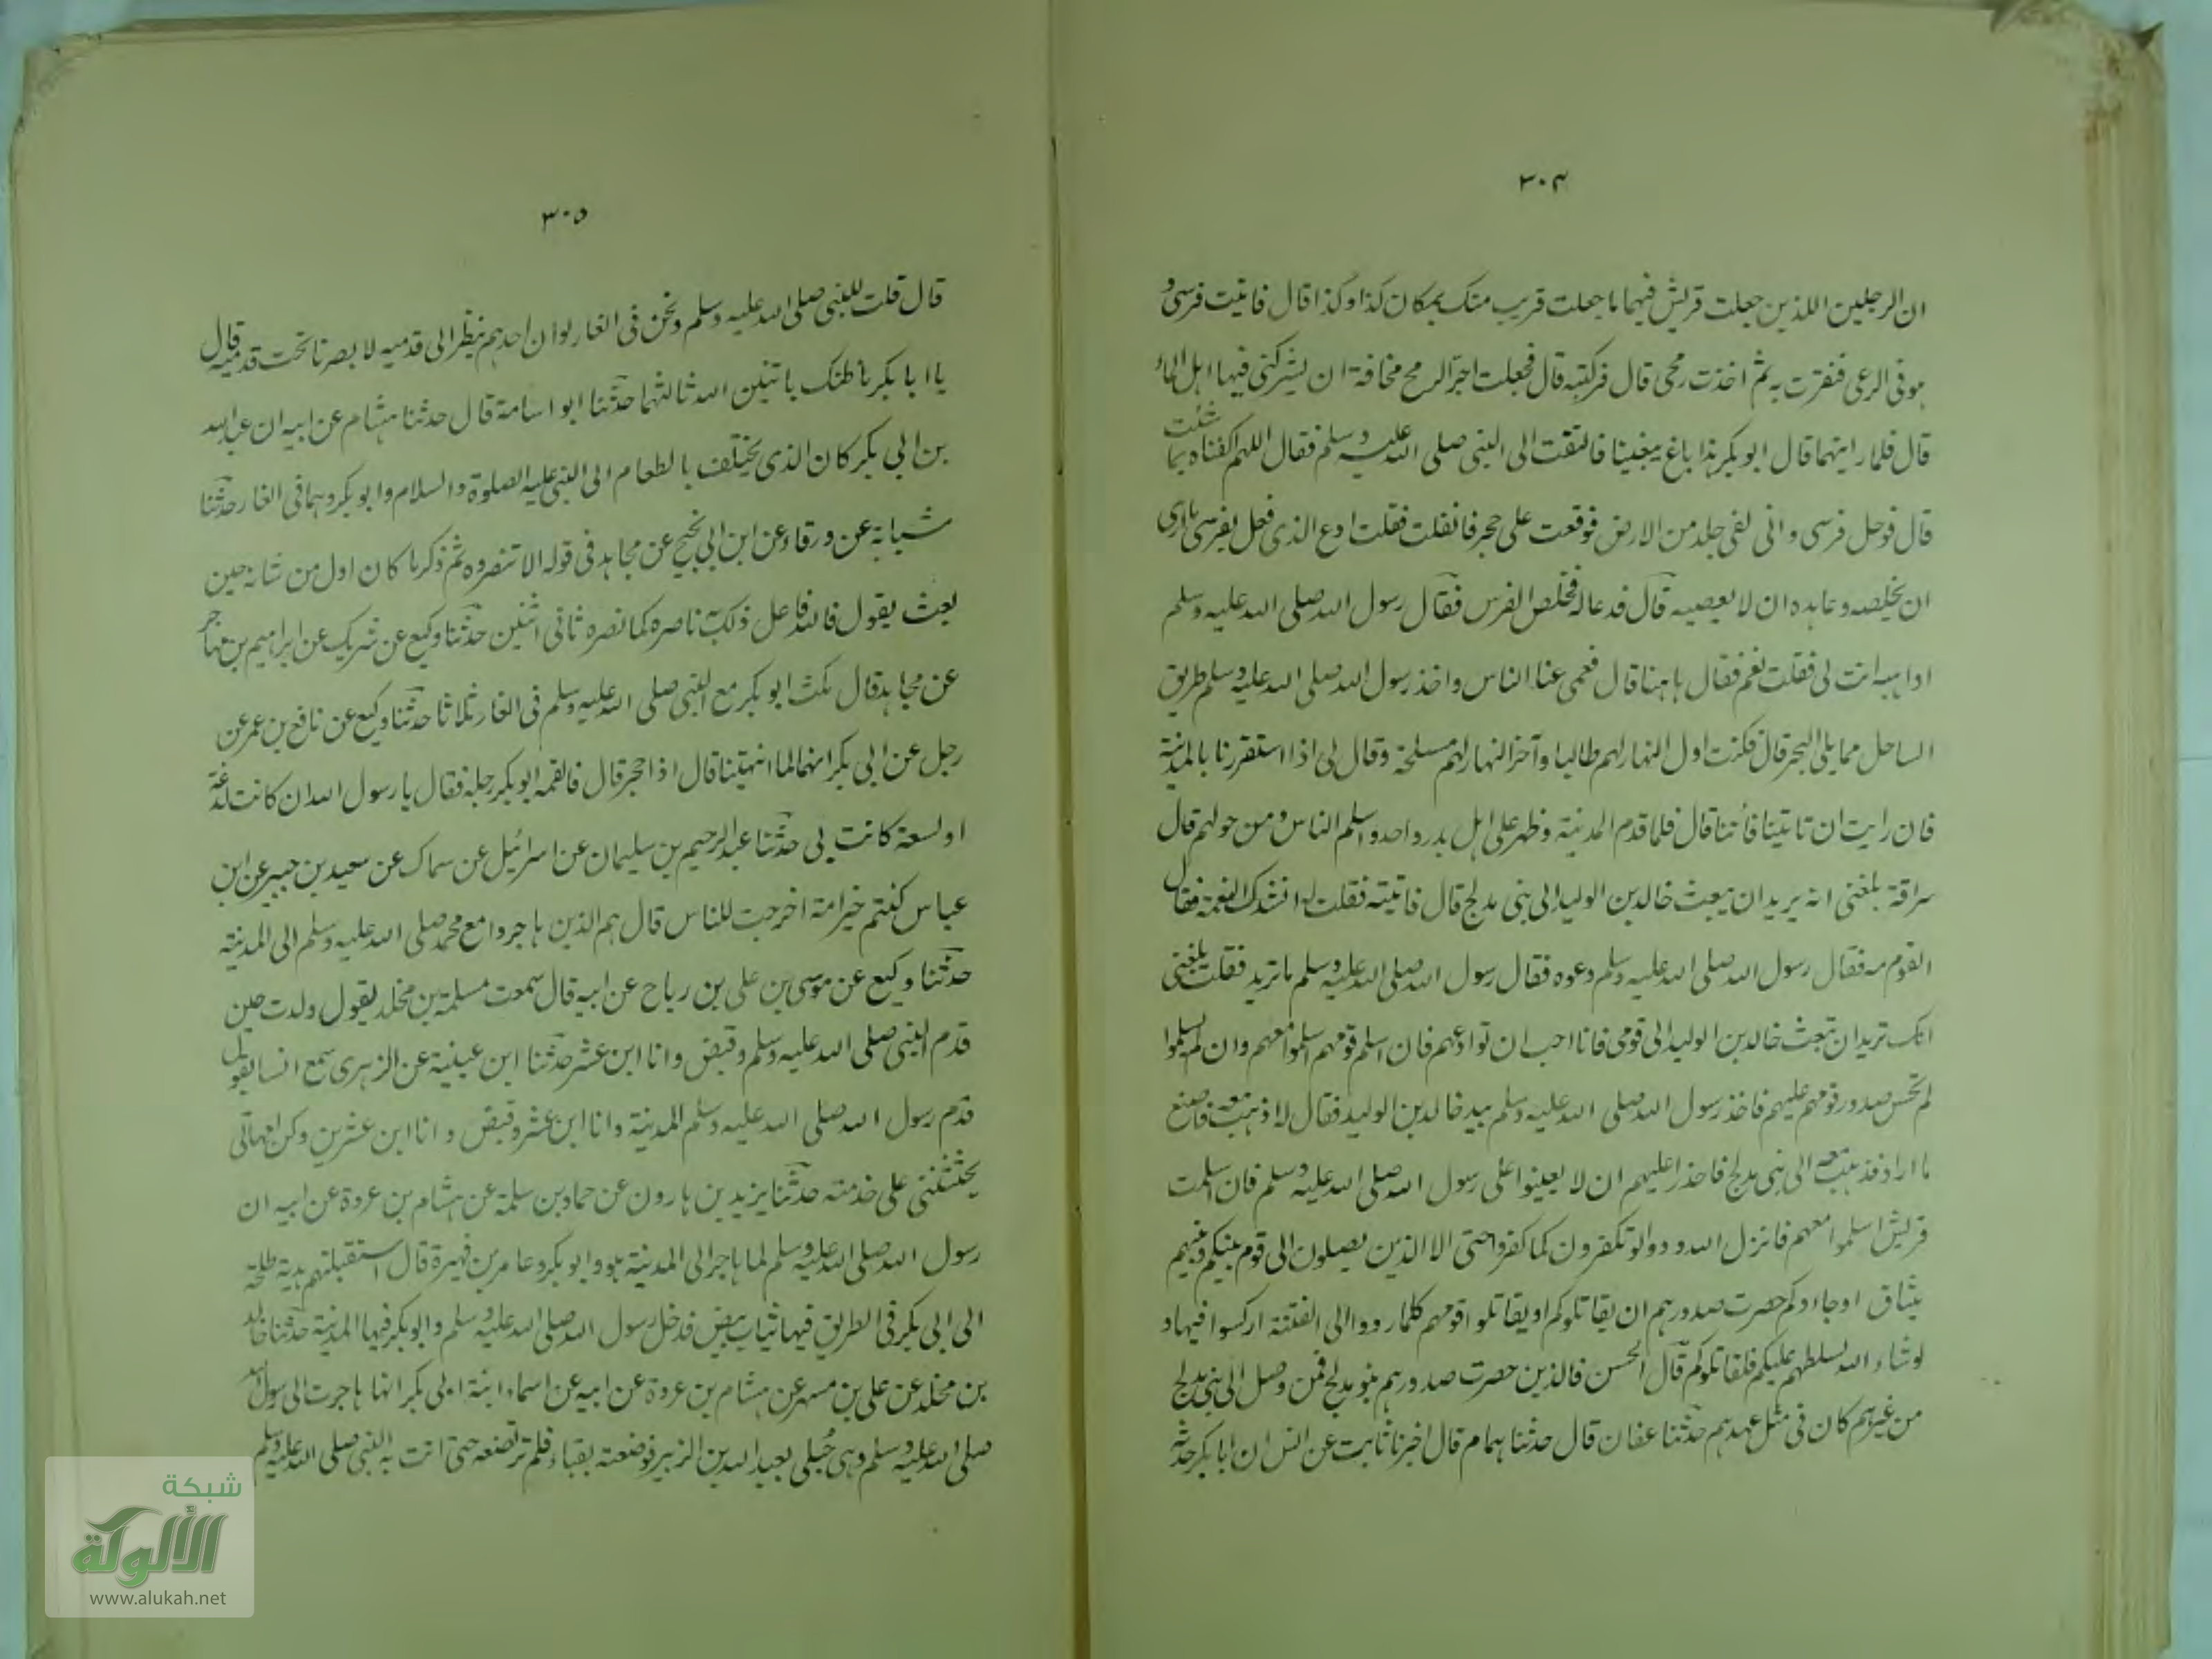 ٣٠٤
ان الرجلين اللذين جعلت قريش فيهما ما جعلت قريب منك بمكان كذا وكذا قال فاتيت فرسى و
هو فى الرعى فنفرت به ثم اخذت رمحى قال فركبته قال فجعلت اجر الرمح مخافة ان يشركنى فيها اهل الماء
قال فلما رايتهما قال ابو بكر هذا باغ يبغينا فالتفت الى النبى صلى الله عليه وسلم فقال اللهم اكفناه بما شئت
قال فوحل فرسى وانى لفى جلد من الارض فوقعت على حجر فانقلت فقلت ادع الذى فعل بفرسى ما ارى
ان يخلصه وعاهده ان لا يعصيه قال فدعا له فخلص الفرس فقال رسول الله صلى الله عليه وسلم
اواهبه انت لى فقلت نعم فقال هاهنا قال فعمى عنا الناس واخذ رسول الله صلى الله عليه وسلم طريق
الساحل مما يلى البحر قال فكنت اول النهار لهم طالبا وآخر النهار لهم مسلحة وقال لى اذا استقررنا بالمدينة
فان رايت ان تاتينا فأتنا قال فلما قدم المدينة وظهر على اهل بدر واحد واسلم الناس ومن حولهم قال
سراقة بلغنى انه يريد ان يبعث خالد بن الوليد الى بنى مدلج قال فاتيته فقلت له انشدك النعمة فقال
القوم مه فقال رسول الله صلى الله عليه وسلم دعوه فقال رسول الله صلى الله عليه وسلم ما تريد فقلت بلغنى
انك تريد ان تبعث خالد بن الوليد الى قومى فانا احب ان توادعهم فان اسلم قومهم اسلموا معهم وان لم يسلموا
لم تخس صدور قومهم عليهم فاخذ رسول الله صلى الله عليه وسلم بيد خالد بن الوليد فقال له اذهب معه فاصنع
ما اراد فذهب معه الى بنى مدلج فاخذ اعليهم ان لا يعينوا على رسول الله صلى الله عليه وسلم فان اسلمت
قريش اسلموا معهم فانزل الله ودوا لو تكفرون كما كفروا حتى الا الذين يصلون الى قوم بينكم وبينهم
ميثاق او جاءوكم حصرت صدورهم ان يقاتلوكم او يقاتلوا قومهم كلما ردوا الى الفتنة اركسوا فيها و
لو شاء الله لسلطهم عليكم فلقاتلوكم قال الحسن فالذين حصرت صدورهم بنو مدلج فمن وصل الى بنى مدلج
من غيرهم كان فى مثل عهدهم حدثنا عفان قال حدثنا همام قال اخبرنا ثابت عن انس ان ابا بكر حدثه
٣٠٥
قال قلت للنبى صلى الله عليه وسلم ونحن فى الغار لو ان احدهم ينظر الى قدميه لا بصرنا تحت قدميه قال
يا ابا بكر ما ظنك باثنين الله ثالثهما حدثنا ابو اسامة قال حدثنا هشام عن ابيه ان عبد الله
بن ابى بكر كان الذى يختلف بالطعام الى النبى عليه الصلوة والسلام وابو بكر وهما فى الغار حدثنا
شبابة عن ورقاء عن ابن ابى نجيح عن مجاهد فى قوله الا تنصروه ثم ذكر ما كان اول من شانه حين
بعث يقول فالله فاعل ذلك به ناصره كما نصره ثانى اثنين حدثنا وكيع عن شريك عن ابراهيم بن مهاجر
عن مجاهد قال مكث ابو بكر مع النبى صلى الله عليه وسلم فى الغار ثلاثا حدثنا وكيع عن نافع بن عمر عن
رجل عن ابى بكر انهما لما انتهينا قال اذا جحر قال فالقمه ابو بكر رجله فقال يا رسول الله ان كانت لدغة
او لسعة كانت بى حدثنا عبد الرحيم بن سليمان عن اسرائيل عن سماك عن سعيد بن جبير عن ابن
عباس كنتم خير امة اخرجت للناس قال هم الذين هاجروا مع محمد صلى الله عليه وسلم الى المدينة
حدثنا وكيع عن موسى بن على بن رباح عن ابيه قال سمعت مسلمة بن مخلد يقول ولدت حين
قدم النبى صلى الله عليه وسلم وقبض وانا ابن عشر حدثنا ابن عيينة عن الزهرى سمع انسا يقول
قدم رسول الله صلى الله عليه وسلم المدينة وانا ابن عشر وقبض وانا ابن عشرين وكن امهاتى
يحثثننى على خدمته حدثنا يزيد بن هارون عن حماد بن سلمة عن هشام بن عروة عن ابيه ان
رسول الله صلى الله عليه وسلم لما هاجر الى المدينة هو وابو بكر وعامر بن فهيرة قال استقبلتهم هدية طلحة
الى ابى بكر فى الطريق فيها ثياب بيض فدخل رسول الله صلى الله عليه وسلم وابو بكر فيها المدينة حدثنا خالد
بن مخلد عن على بن مسهر عن هشام بن عروة عن ابيه عن اسماء ابنة ابى بكر انها هاجرت الى رسول الله
صلى الله عليه وسلم وهى حبلى بعبد الله بن الزبير فوضعته بقباء فلم ترضعه حتى اتت به النبى صلى الله عليه وسلم
شبكة
الألوكة
www.alukah.net